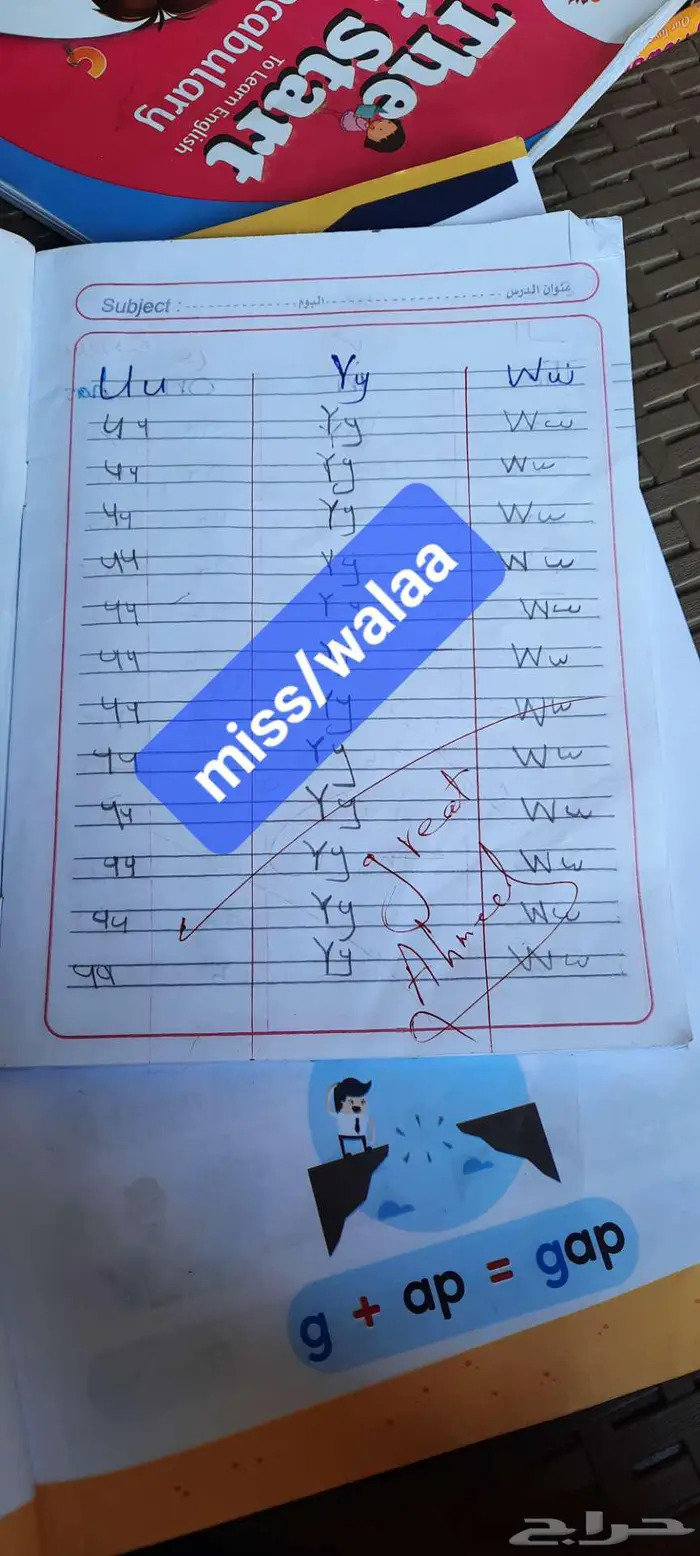 The
Start
Vocabulary
To Learn English
Subject : اليوم عنوان الدرس
Uu Yy Ww
Uu Yy Ww
Uu Yy Ww
Uu Yy Ww
Uu Yy Ww
Uu Yy Ww
Uu Ww
Uu Yy Ww
Uu Yy Ww
Uu Yy Ww
Uu Yy Ww
Uu Yy Ww
Uu Yy Ww
miss/walaa
great
Ahmed
g + ap = gap
حراج